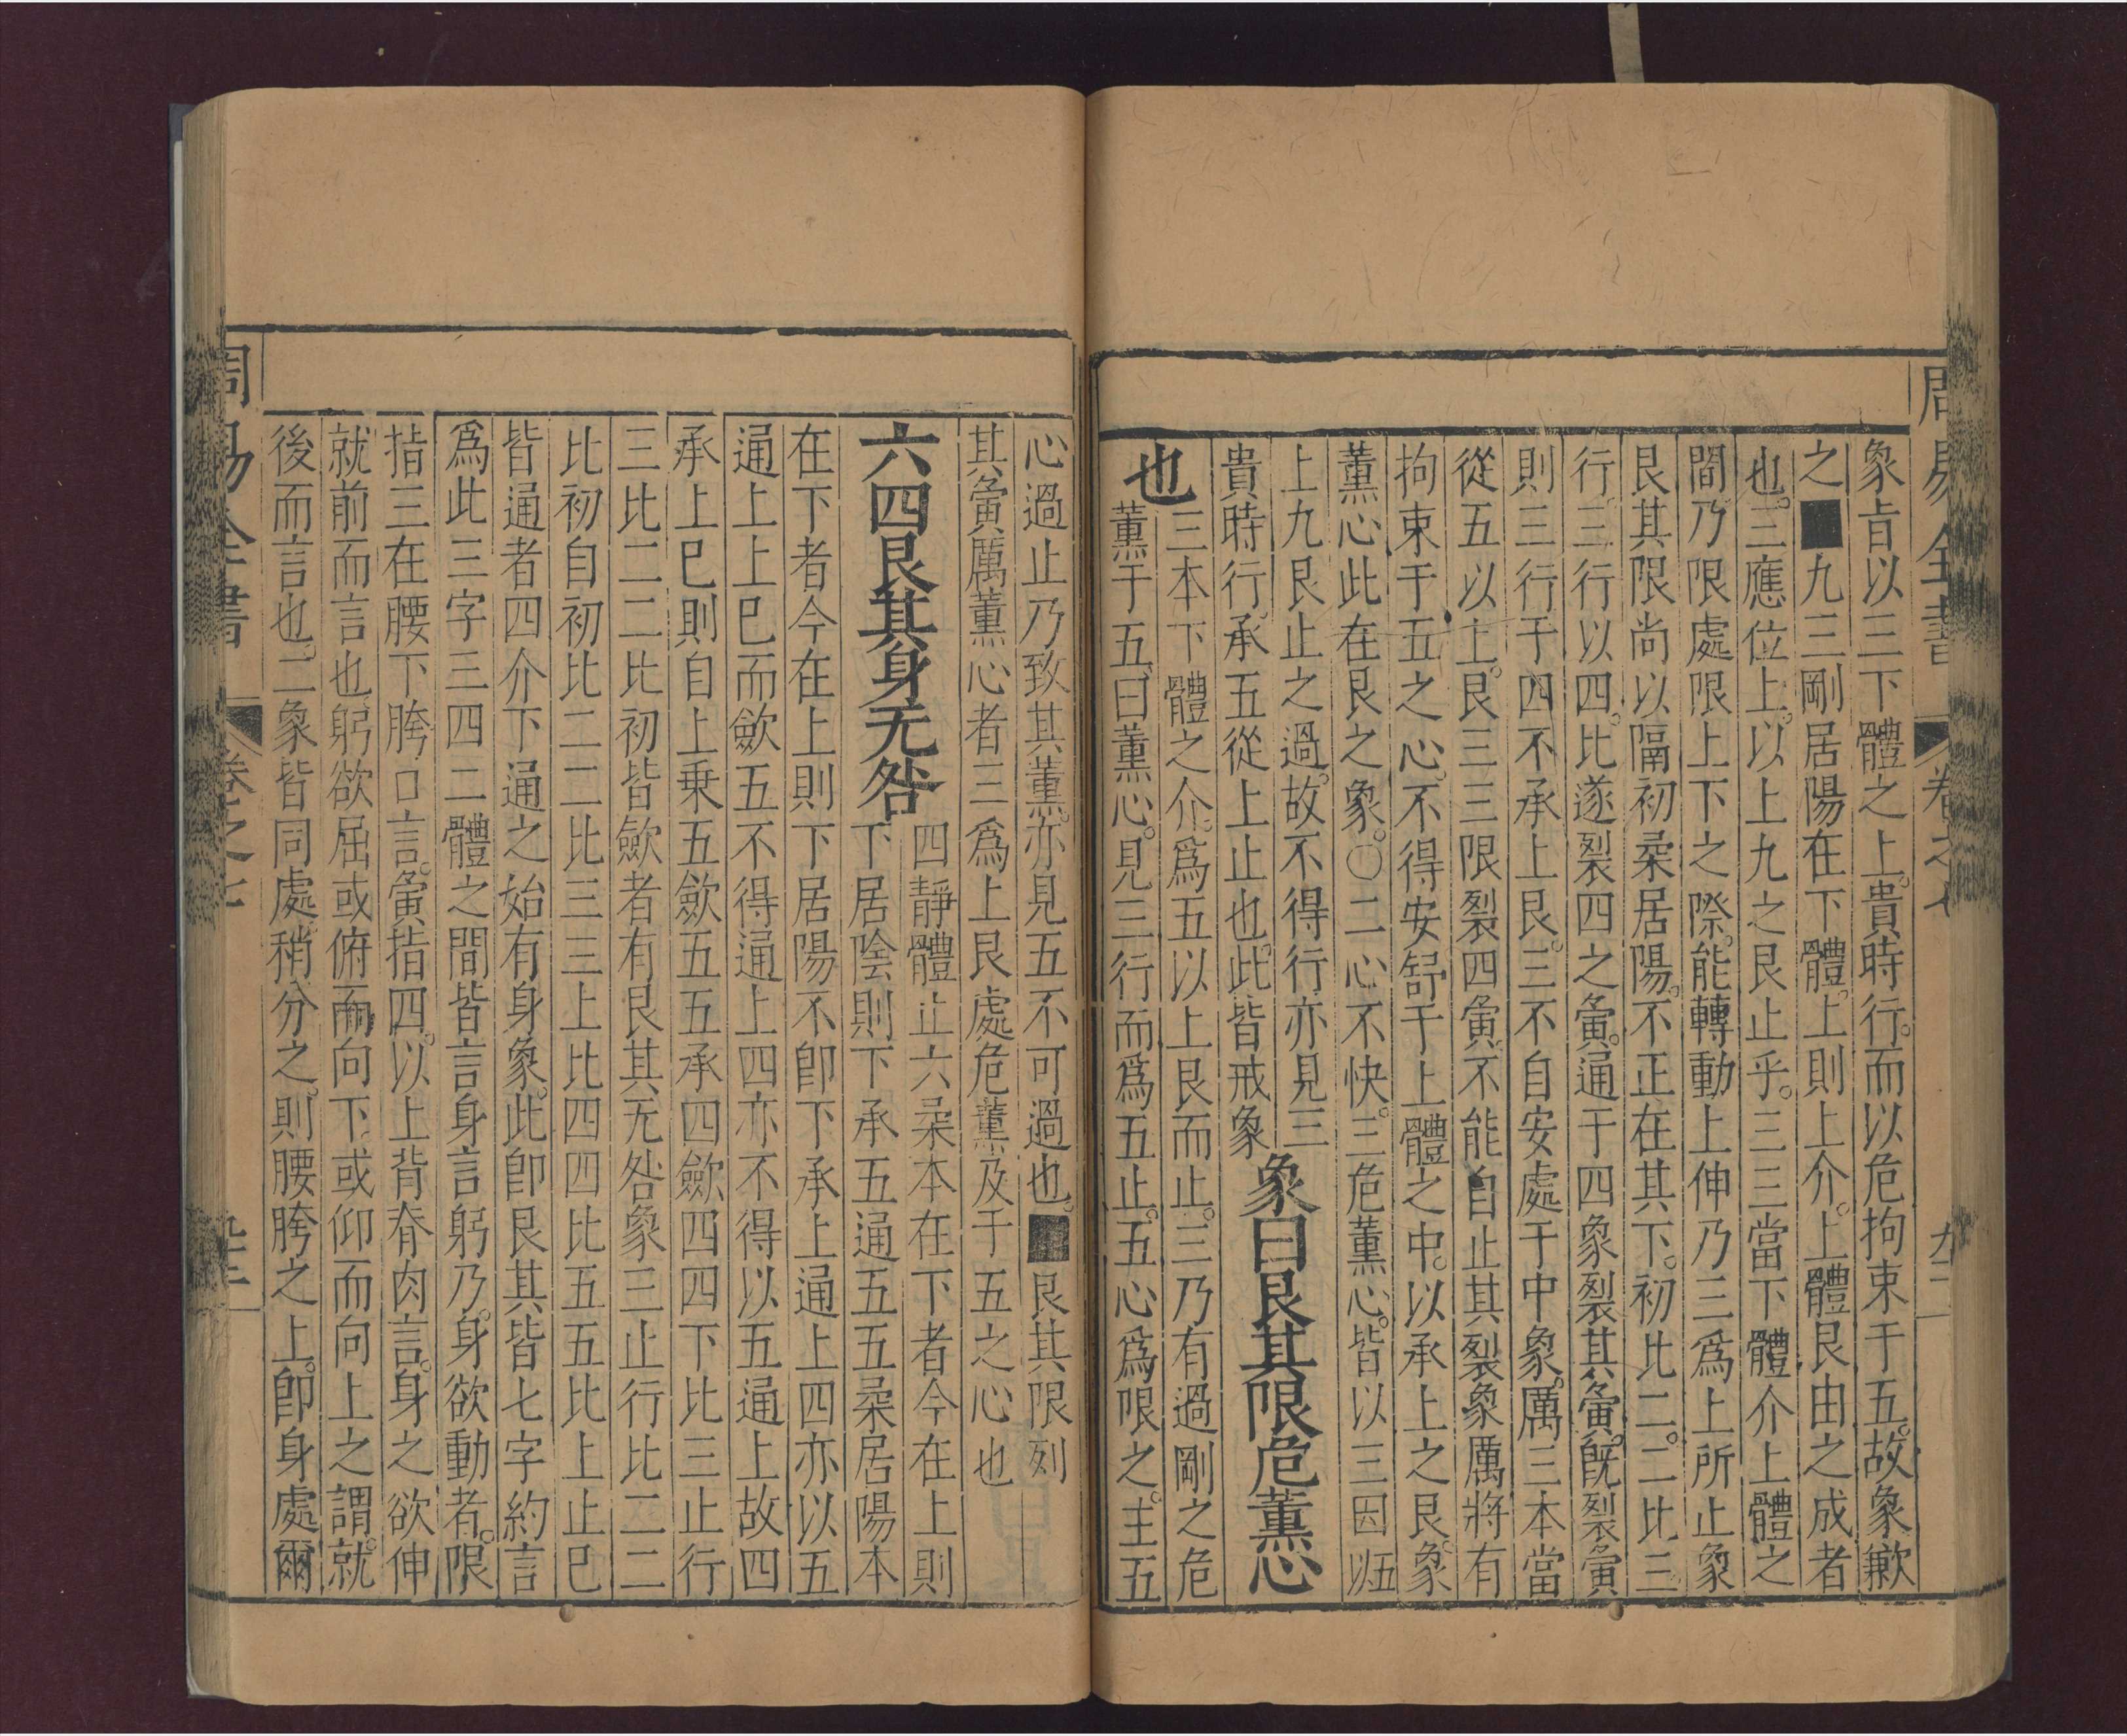 周易全書 卷之七
象旨以三下體之上。貴時行。而以危拘束于五。故象歉
之■九三剛居陽在下體。上則上介。上體艮由之成者
也。三應位上。以上九之艮止乎。三三當下體介上體之
間乃限處限上下之際。能轉動上伸乃三爲上所止象
艮其限尚以隔初柔居陽。不正在其下。初比二。二比三
行。三行以四。比遂裂四之夤。通于四象裂其夤。旣裂夤
則三行于四不承上艮。三不自安處于中象。厲三本當
從五以上。艮三三限裂四夤不能自止其裂象厲將有
拘束于五之心。不得安舒于上體之中。以承上之艮。象
薰心此在艮之象。〇二心不快。三危薰心。皆以三因以五
上九艮止之過。故不得行亦見三
貴時行。承五從上止也。此皆戒象
象曰艮其限危薰心
也
三本下體之介。爲五以上艮而止。三乃有過剛之危
薰于五、曰薰心。見三行而爲五止。五心爲限之。主五
心過止乃致其薰。亦見五不可過也。■艮其限列
其夤厲薰心者三爲上艮處危薰及于五之心也
六四艮其身无咎
四靜體止六柔本在下者今在上則
下居陰則下承五通五五柔居陽本
在下者今在上則下居陽不卽下承上通上四亦以五
通上上巳而歛五不得通上四亦不得以五通上故四
承上巳則自上乗五歛五五承四歛四四下比三止行
三比二二比初皆歛者有艮其无咎象三止行比二二
比初自初比二二比三三上比四四比五五比上止巳
皆通者四介下通之始有身象。此卽艮其皆七字約言
爲此三字三四二體之間皆言身言躬乃。身欲動者。限
指三在腰下胯口言。夤指四。以上背脊肉言。身之欲伸
就前而言也躬欲屈或俯而向下或仰而向上之謂。就
後而言也。二象皆同處稍分之。則腰胯之上。卽身處爾
周易全書 卷之七